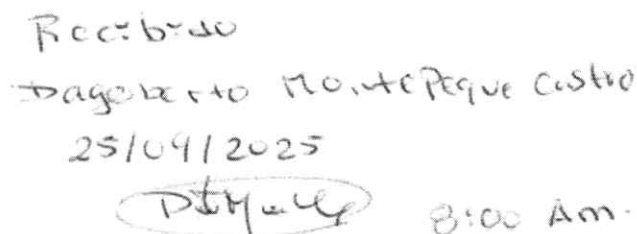 Recibido
Dagoberto Montepeque Castro
25/09/2025
8:00 Am.